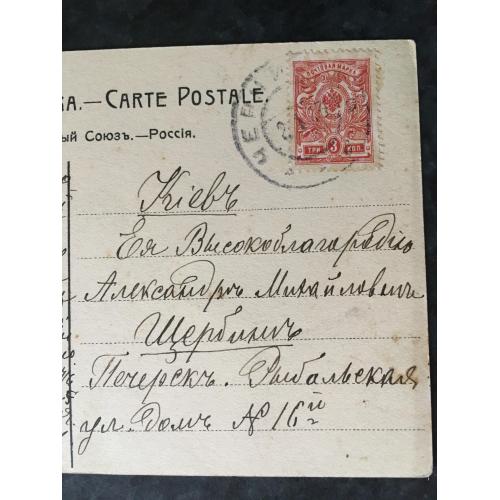 КА.—CARTE POSTALE.
ый Союзъ.—Россія.
ПОЧТОВАЯ МАРКА
ТРИ 3 КОП.
ЧЕРНИ
Кіевъ
Ея Высокоблагородію
Александрѣ Михайловнѣ
Щербинѣ
Печерскъ. Рыбальская
ул. Домъ № 16й